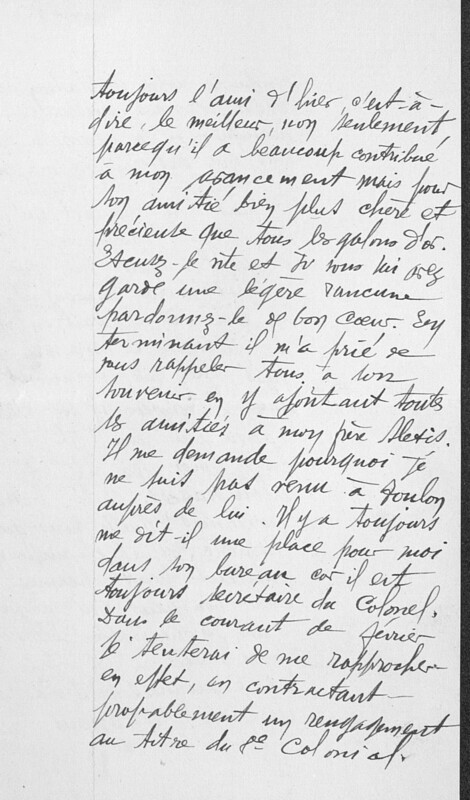 toujours l'ami d'hier, c'est-à-
dire, le meilleur, non seulement
parcequ'il a beaucoup contribué
à mon avancement mais pour
son amitié bien plus chère et
précieuse que tous les galons d'or.
Excusez-le vite et si vous lui avez
gardé une légère rancune
pardonnez-le de bon cœur. En
terminant il m'a prié de
vous rappeler tous à son
souvenir en y ajoutant toutes
les amitiés à mon frère Alexis.
Il me demande pourquoi je
ne suis pas venu à Toulon
auprès de lui. Il y a toujours
me dit-il une place pour moi
dans son bureau car il est
toujours secrétaire du Colonel.
Dans le courant de février
je tenterai de me rapprocher
en effet, en contractant
probablement un rengagement
au titre du 8e Colonial.